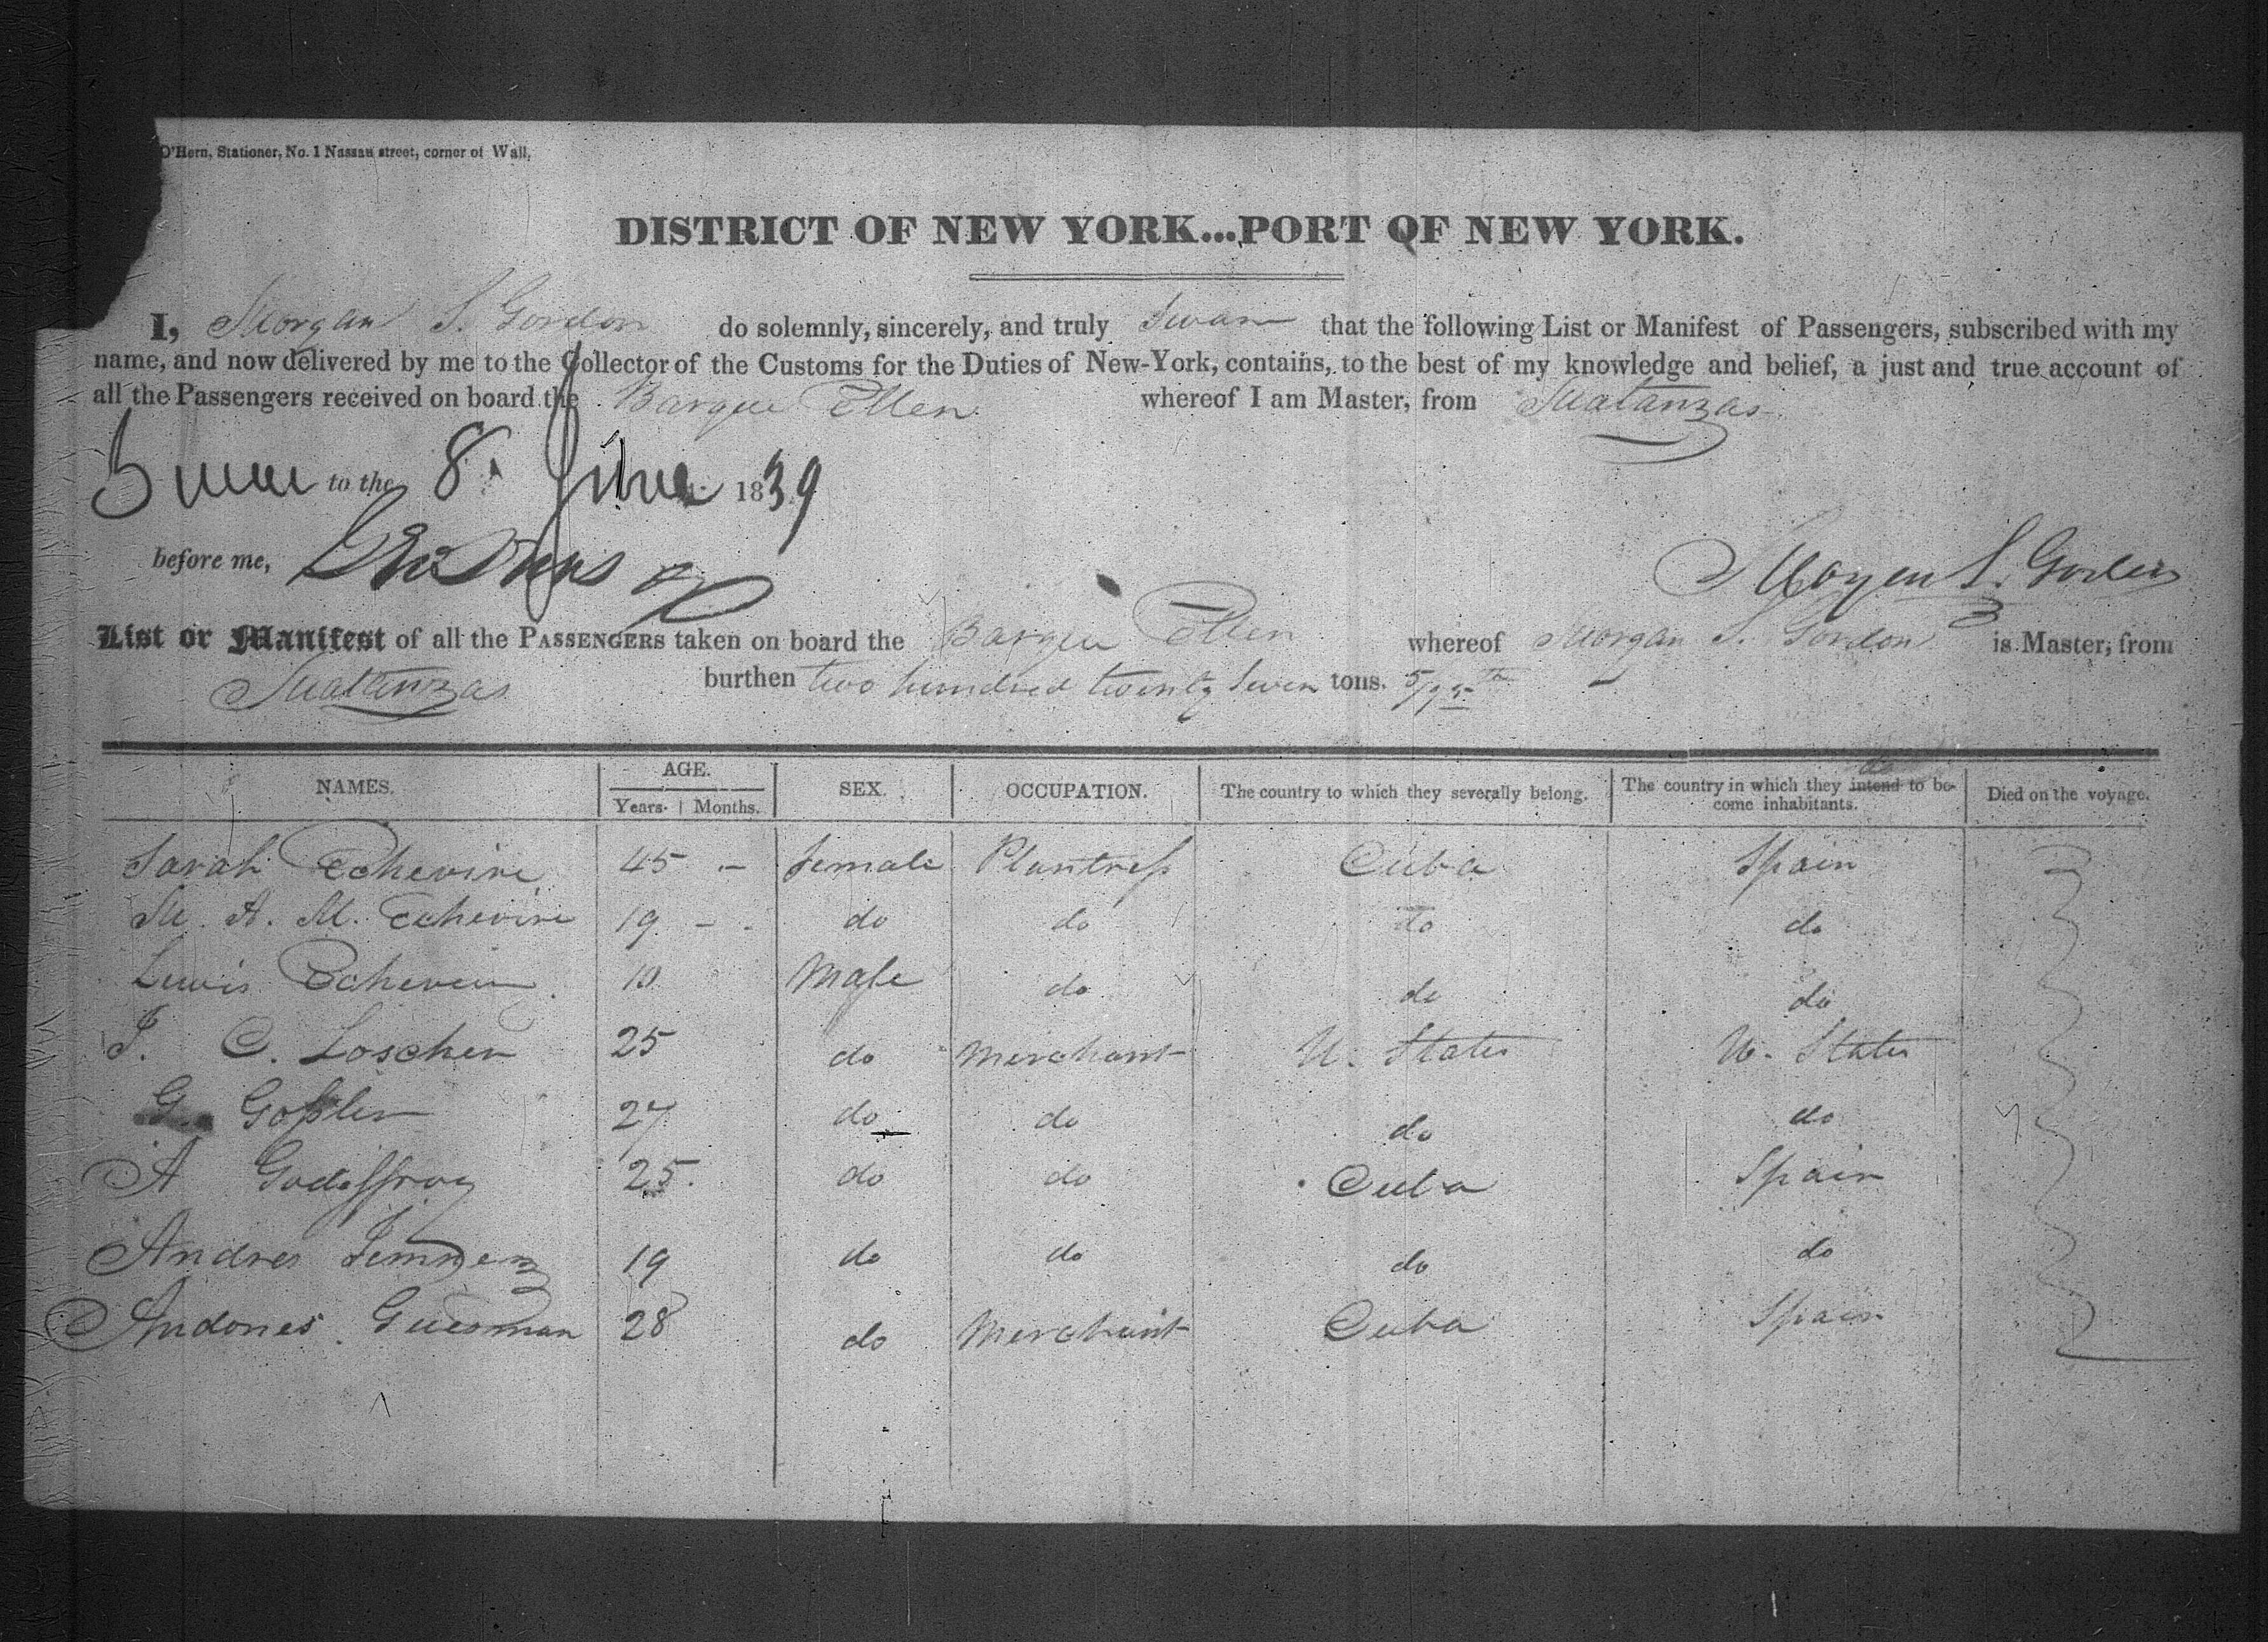 O'Hern, Stationer, No. 1 Nassau street, corner of Wall,
DISTRICT OF NEW YORK...PORT OF NEW YORK.
I, Morgan S. Gordon do solemnly, sincerely, and truly Swear that the following List or Manifest of Passengers, subscribed with my
name, and now delivered by me to the Collector of the Customs for the Duties of New-York, contains, to the best of my knowledge and belief, a just and true account of
all the Passengers received on board the Barque Ellen whereof I am Master, from Matanzas
to the 8 June 1839
before me, Morgan S. Gordon
List or Manifest of all the PASSENGERS taken on board the Barque Ellen whereof Morgan S. Gordon is Master, from
Matanzas burthen two hundred twenty Seven tons. 5/95th
NAMES. AGE. Years. Months. SEX. OCCUPATION. The country to which they severally belong. The country in which they intend to become inhabitants. Died on the voyage.
Sarah Echevire 45 - female Plantress Cuba Spain
M. A. M. Echevire 19 - do do do do
Lewis 10 Male do do do
J. C. Loscher 25 do Merchant U. States U. States
G. Gossler 27 do do do do
A Godeffroy 25 do do Cuba Spain
Andres 19 do do do do
Andones Guesman 28 do Merchant Cuba Spain